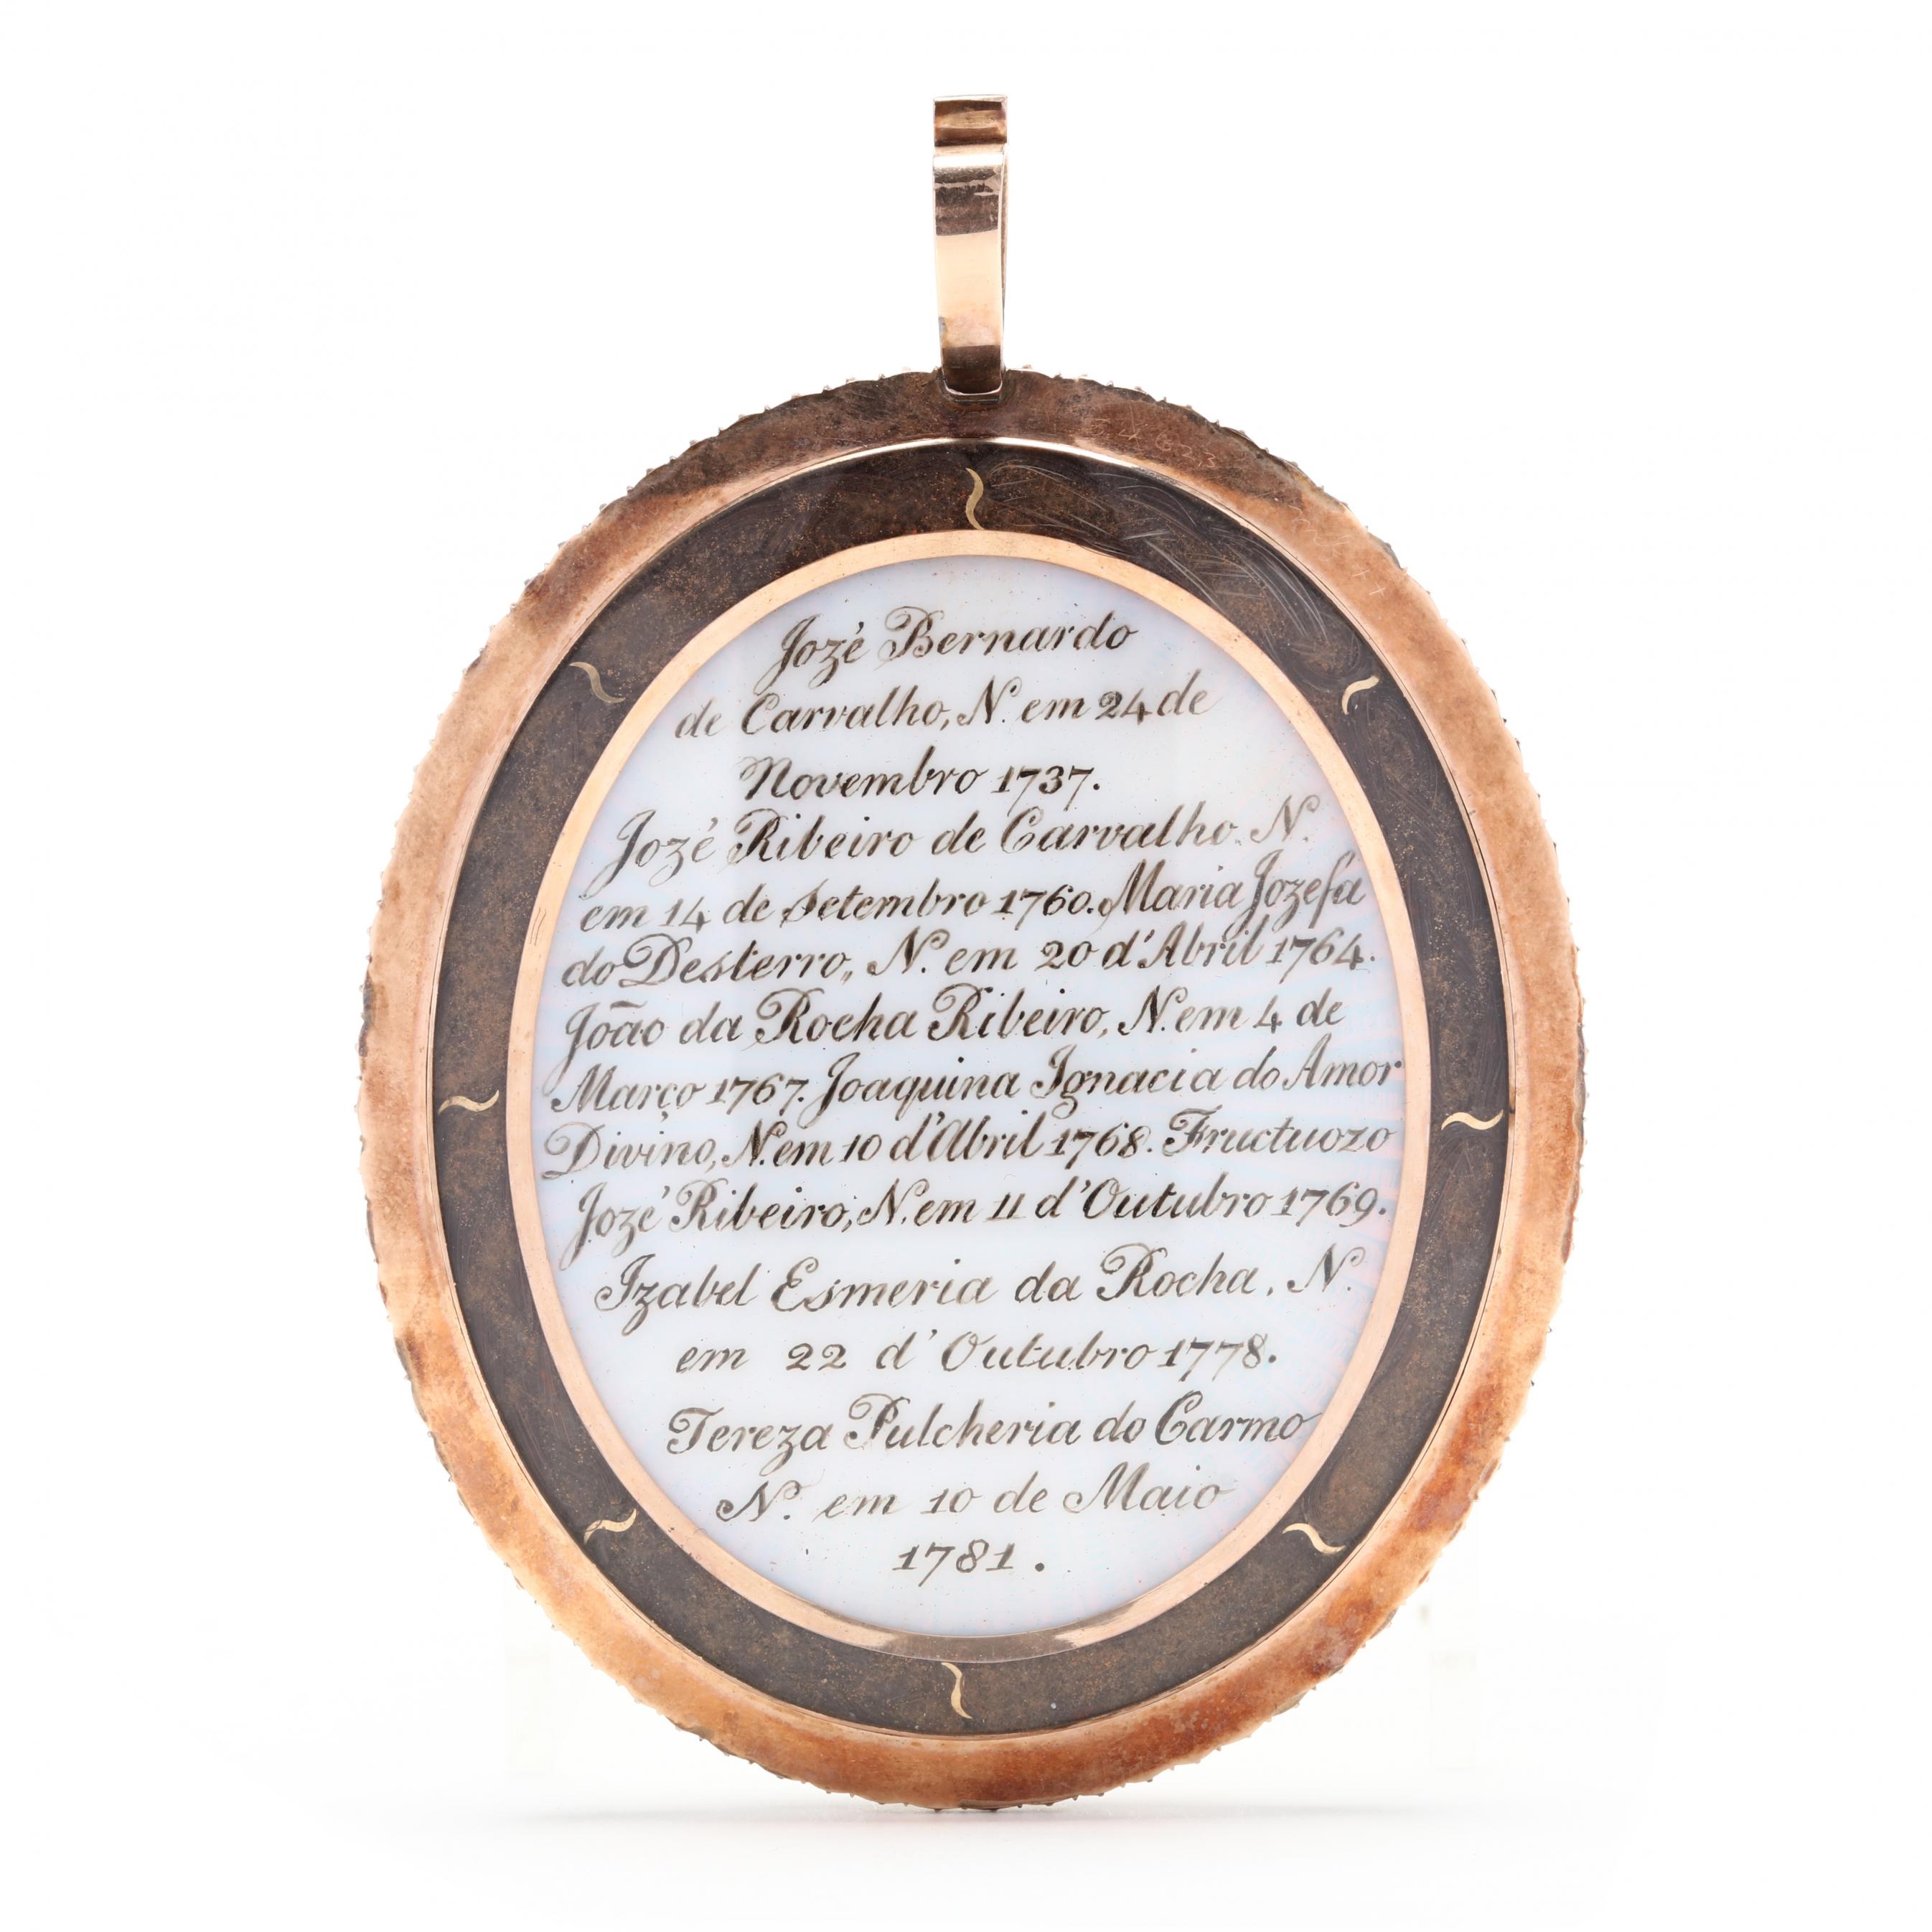 Jozé Bernardo
de Carvalho, N. em 24 de
Novembro 1737.
Jozé Ribeiro de Carvalho. N.
em 14 de Setembro 1760. Maria Jozefa
do Desterro, N. em 20 d'Abril 1764.
João da Rocha Ribeiro, N. em 4 de
Março 1767. Joaquina Ignacia do Amor
Divino, N. em 10 d'Abril 1768. Fructuozo
Jozé Ribeiro, N. em 11 d'Outubro 1769.
Izabel Esmeria da Rocha, N.
em 22 d'Outubro 1778.
Tereza Pulcheria do Carmo
N. em 10 de Maio
1781.